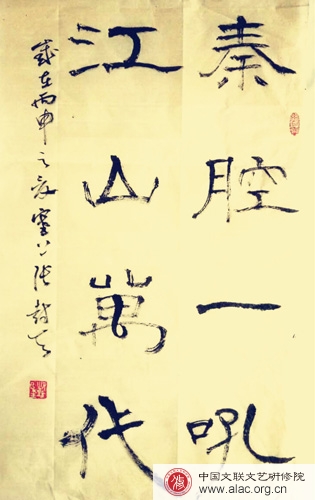 秦腔一吼
江山萬代
歲在丙申之秋
中国文联文艺研修院
www.alac.org.cn